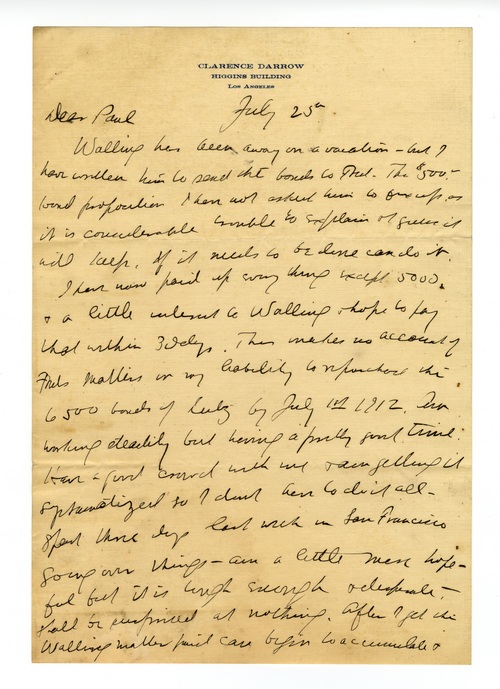 CLARENCE DARROW
HIGGINS BUILDING
LOS ANGELES
Dear Paul July 25th
Walling has been away on a vacation - but I
have written him to send the bonds to Fred. The $500-
bond proposition I have not asked him to as
it is considerable trouble to explain & guess it
will keep. If it needs to be done can do it.
I have now paid up every thing except 5000.
& a little interest to Walling & hope to pay
that within 30 days. This makes no account of
Freds matters or my liability to repurchase the
6500 bonds of by July 1st 1912. Am
working steadily but having a pretty good time.
Have a good crowd with me & am getting it
systematized so I dont have to do it all -
Spent three days last week in San Francisco
going over things - am a little more hope-
ful but it is tough enough & desperate -
Shall be surprised at nothing. After I get the
Walling matter paid can begin to accumulate &